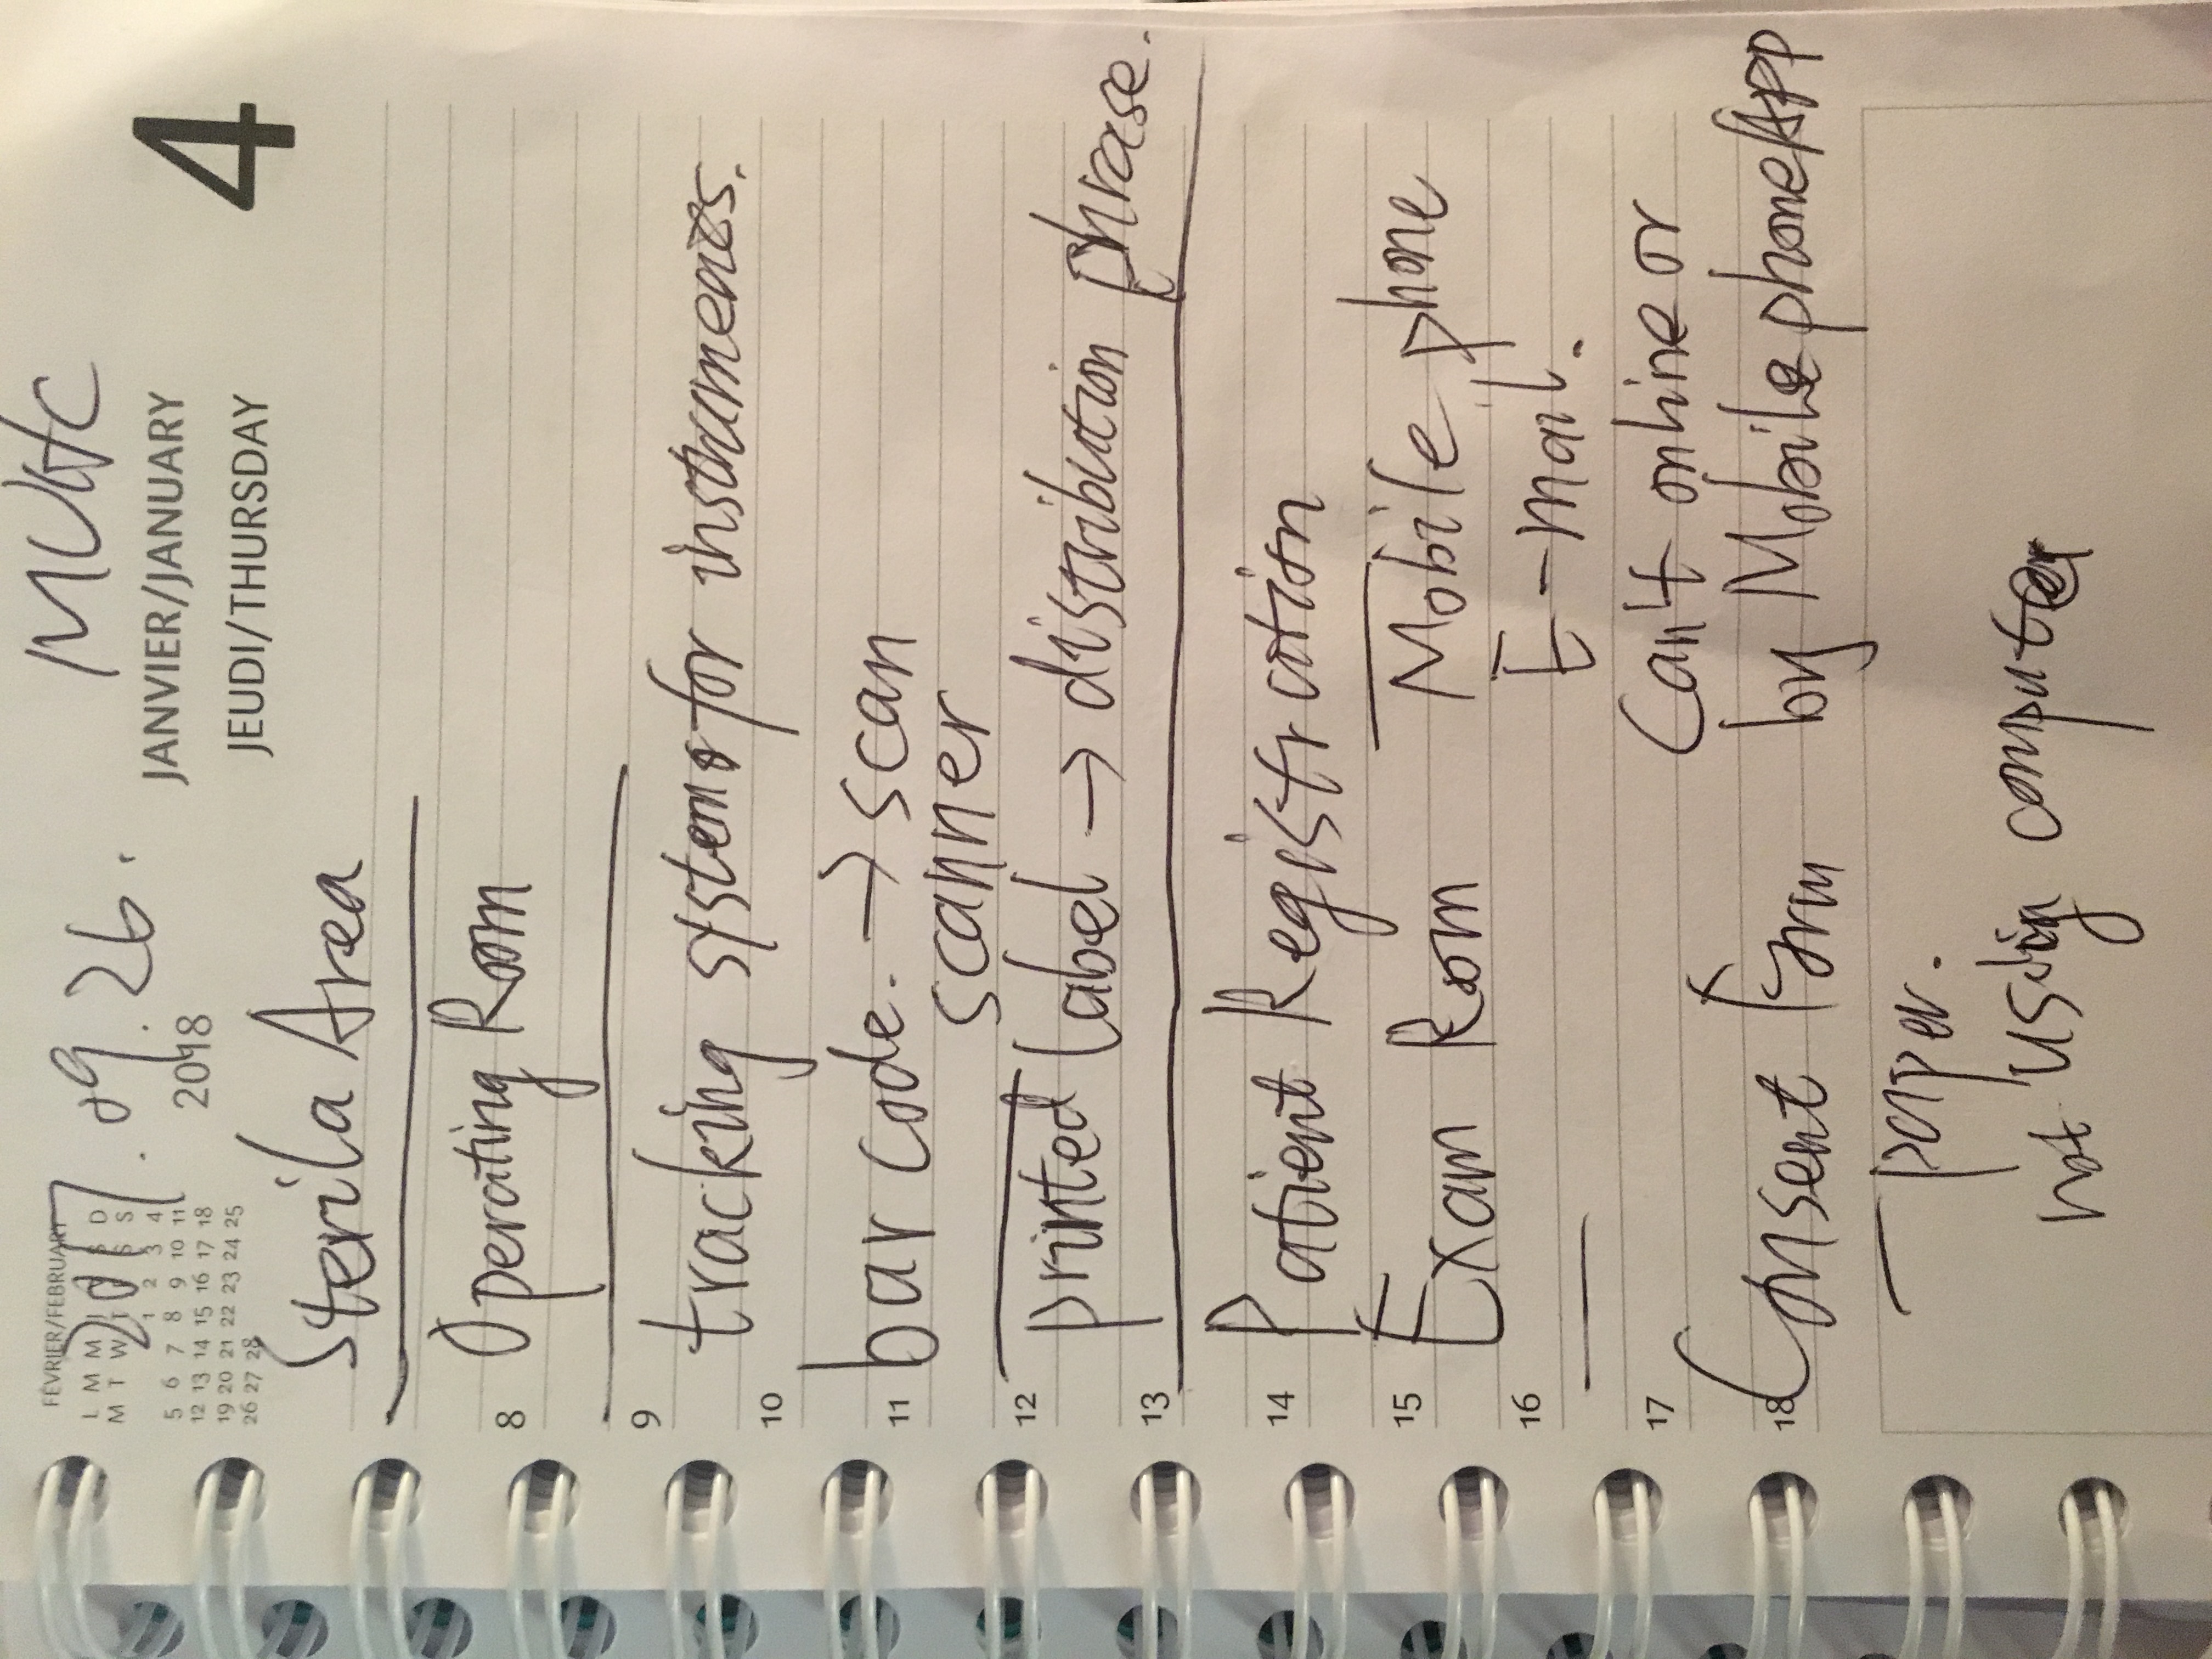 MUHC
FÉVRIER/FEBRUARY
2017.09.26.
L M M J V S D
M T W T F S S
1 2 3 4
5 6 7 8 9 10 11
12 13 14 15 16 17 18
19 20 21 22 23 24 25
26 27 28
2018
JANVIER/JANUARY
JEUDI/THURSDAY
4
Sterila Area
8 Operating Room
9
tracking systems for instruments.
10
11 bar code. → scan
scanner
12
printed label → distribution phrase.
13
14 Patient Registration
15 Exam Room Mobile phone
16 E-mail.
17 Can't online or
18 Consent Form by Mobile phone APP
paper.
not using computer